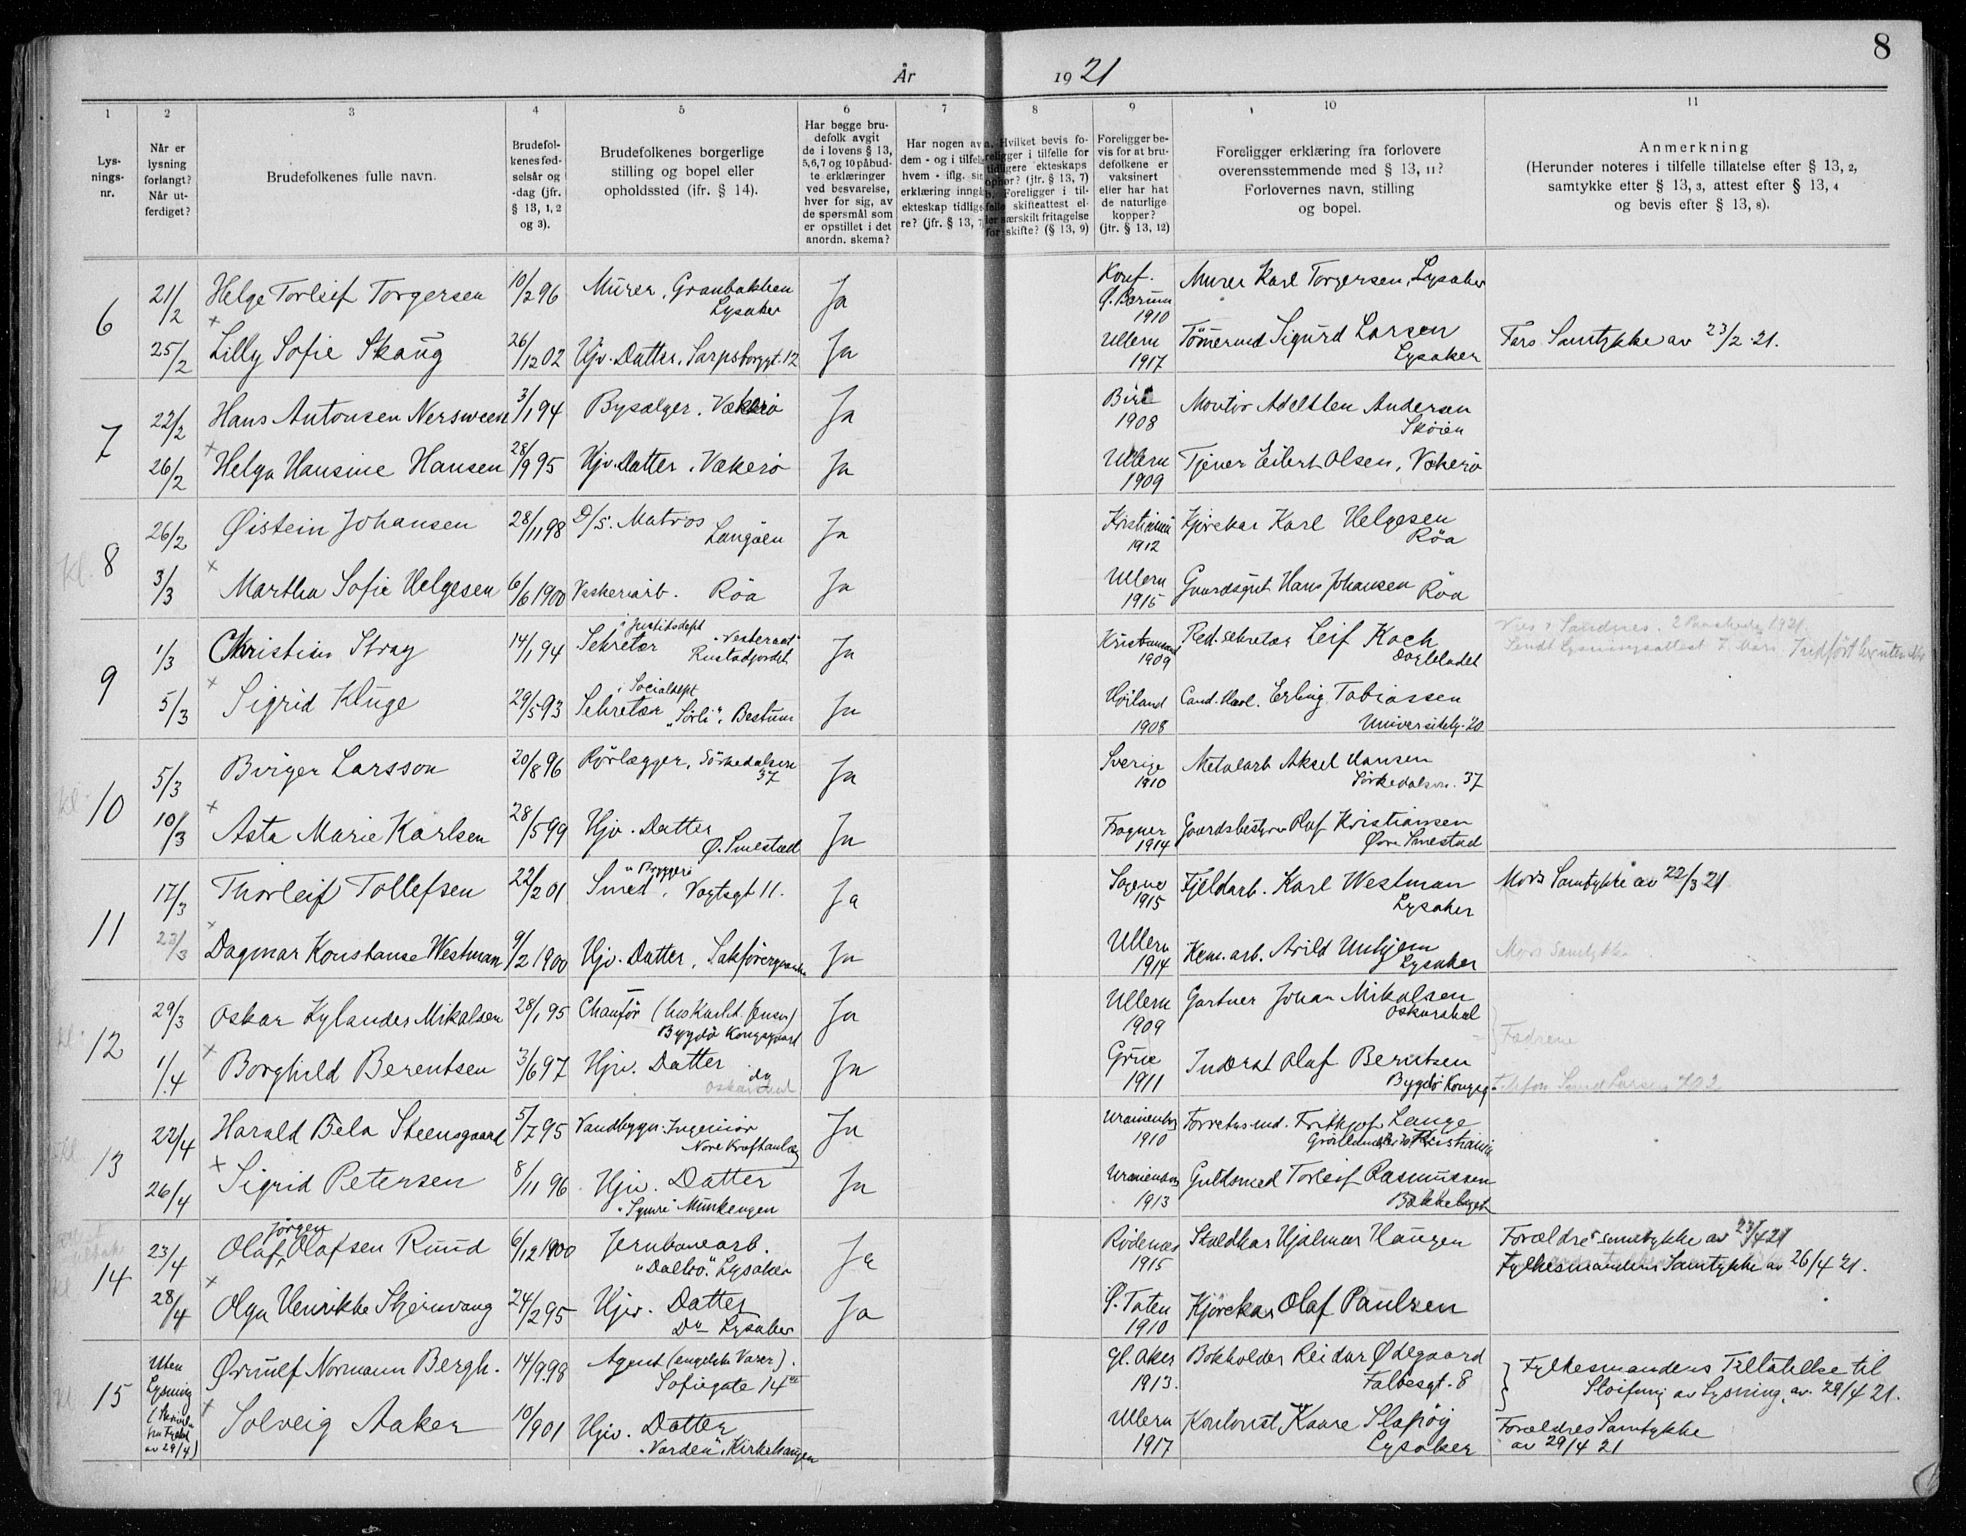 8
År 1921
1 2 3 4 5 6 7 8 9 10 11
Lys-
nings-
nr.
Når er
lysning
forlangt?
Når ut-
ferdiget?
Brudefolkenes fulle navn.
Brudefol-
kenes fød-
selsår og
-dag (jfr.
§ 13, 1, 2
og 3).
Brudefolkenes borgerlige
stilling og bopel eller
opholdssted (jfr. § 14).
Har begge bru-
defolk avgit
de i lovens § 13,
5,6,7 og 10 påbud-
te erklæringer
ved besvarelse,
hver for sig, av
de spørsmål som
er opstillet i det
anordn. skema?
Har nogen av
dem - og i tilfelle
hvem - iflg. sin
erklæring inngått
ekteskap tidlige-
re? (jfr. § 13, 7)
a. Hvilket bevis fo-
religger i tilfelle for
tidligere ekteskaps
ophør? (jfr. § 13, 7)
b. Foreligger i til-
felle skifteattest el-
ler særskilt fritagelse
for skifte? (§ 13, 9)
Foreligger be-
vis for at bru-
defolkene er
vaksinert
eller har hat
de naturlige
kopper?
(jfr. § 13, 12)
Foreligger erklæring fra forlovere
overensstemmende med § 13, 11?
Forlovernes navn, stilling
og bopel.
Anmerkning
(Herunder noteres i tilfelle tillatelse efter § 13, 2,
samtykke efter § 13, 3, attest efter § 13, 4
og bevis efter § 13, 8).
6
21/2 Helge Torleif Torgersen 10/2 96 Murer, Granbakken Ja Murer Karl Torgersen, Lysaker
Lysaker
1910
25/2 Lilly Sofie Skaug 26/12 02 Hjv. Datter, Sarpsborggt. 12 Ja Ullern Tømmermd Sigurd Larsen Fars Samtykke av 23/2 21.
1917 Lysaker
7
22/2 Hans Antonsen Nersween 3/1 94 Bysælger, Vækerø Ja Biri Montør Andersen
1908 Skøien
26/2 Helga Hansine Hansen 28/9 95 Hjv. Datter, Vækerø Ja Ullern Tjener Eilert Olsen, Vækerø
1909
kl. 8
26/2 Øistein Johansen 28/11 98 D/S. Matros Ja Kristiania Kjørekar Karl Helgesen
Langåen 1912 Røa
3/3 Martha Sofie Helgesen 6/6 1900 Vaskeriarb. Røa Ja Ullern Gaardsgut Hans Johansen Røa
1915
9
1/3 Christian Stray 14/1 94 Sekretær i Justitsdept Ja Kristiansand Red. sekretær Leif Koch
"Vesteraat" Rustadjordet 1909 Dagbladet
Sendt Lysningsattest 7. Mars. Indført
5/3 Sigrid Kluge 29/5 93 Sekretær i Socialdept Ja Høiland Cand. Erling Tobiassen
"Sørli", Bestum 1908 Universitetsg. 20
10
5/3 Birger Larsson 20/8 96 Rørlægger, Sørkedalsvn Ja Sverige Metalarb Aksel Hansen
37 1910 Sørkedalsvn. 37
10/3 Asta Marie Karlsen 28/5 99 Hjv. Datter Ja Fagner Gaardsbestyrer Olaf Kristiansen
Ø. Smestad 1914 Øvre Smestad
11
17/3 Thorleif Tollefsen 22/2 01 Smed, Bryggeri Vogtsgt 11. Ja Sagene Fjeldarb. Karl Westman Mors Samtykke av 22/3 21
1915 Lysaker
23/3 Dagmar Konstanse Westman 9/2 1900 Hjv. Datter, Ja Ullern Kem. arb. Arild Unhjem Mors Samtykke
1914 Lysaker
12
29/3 Oskar Kylander Mikalsen 28/1 95 Chaufør Ja Ullern Gartner Johan Mikalsen
Bygdø Kongsgaard 1909 Oskarshal
Fædrene
1/4 Borghild Berentsen 3/6 97 Hjv. Datter Ja Grue Inderst Olaf Berntsen
do 1911 Bygdø Kongsg.
13
22/4 Harald Bela Steensgaard 5/7 95 Vandbygn. Ingeniør Ja Uranienborg Forretns.md. Frithjof Lange
Nore Kraftanlæg 1910 Kristiania
26/4 Sigrid Petersen 8/11 96 Hjv. Datter Ja Uranienborg Guldsmed Torleif Rasmussen
Munkengen 1913 Bakkehaget
14
23/4 Olaf Jørgen Olafsen Ruud 6/12 1900 Jernbanearb. Ja Rødenes Staldkar Hjalmar Haugen Forældres samtykke av 23/4 21
"Dalbo". Lysaker 1915 Fylkesmandens Samtykke av 26/4 21.
28/4 Olga Henrikke Skjernvang 24/2 95 Hjv. Datter Ja Ø. Toten Kjørekar Olaf Paulsen
Do Lysaker 1910
15
Uten Ørnulf Normann Bergh. 14/9 98 Agent (engelske Varer). Gl. Aker Bokholder Reidar Ødegaard Fylkesmandens Tillatelse til
Lysning Sofiegate 14 1913. Falbesgt. 8 Sløifning av Lysning, av 29/4 21.
av 29/4) Solveig Aaker 10/9 01 Hjv. Datter Ullern Kontorist Kaare Forældres Samtykke
"Varden", Kirkehaugen 1917 Lysaker av 29/4 21